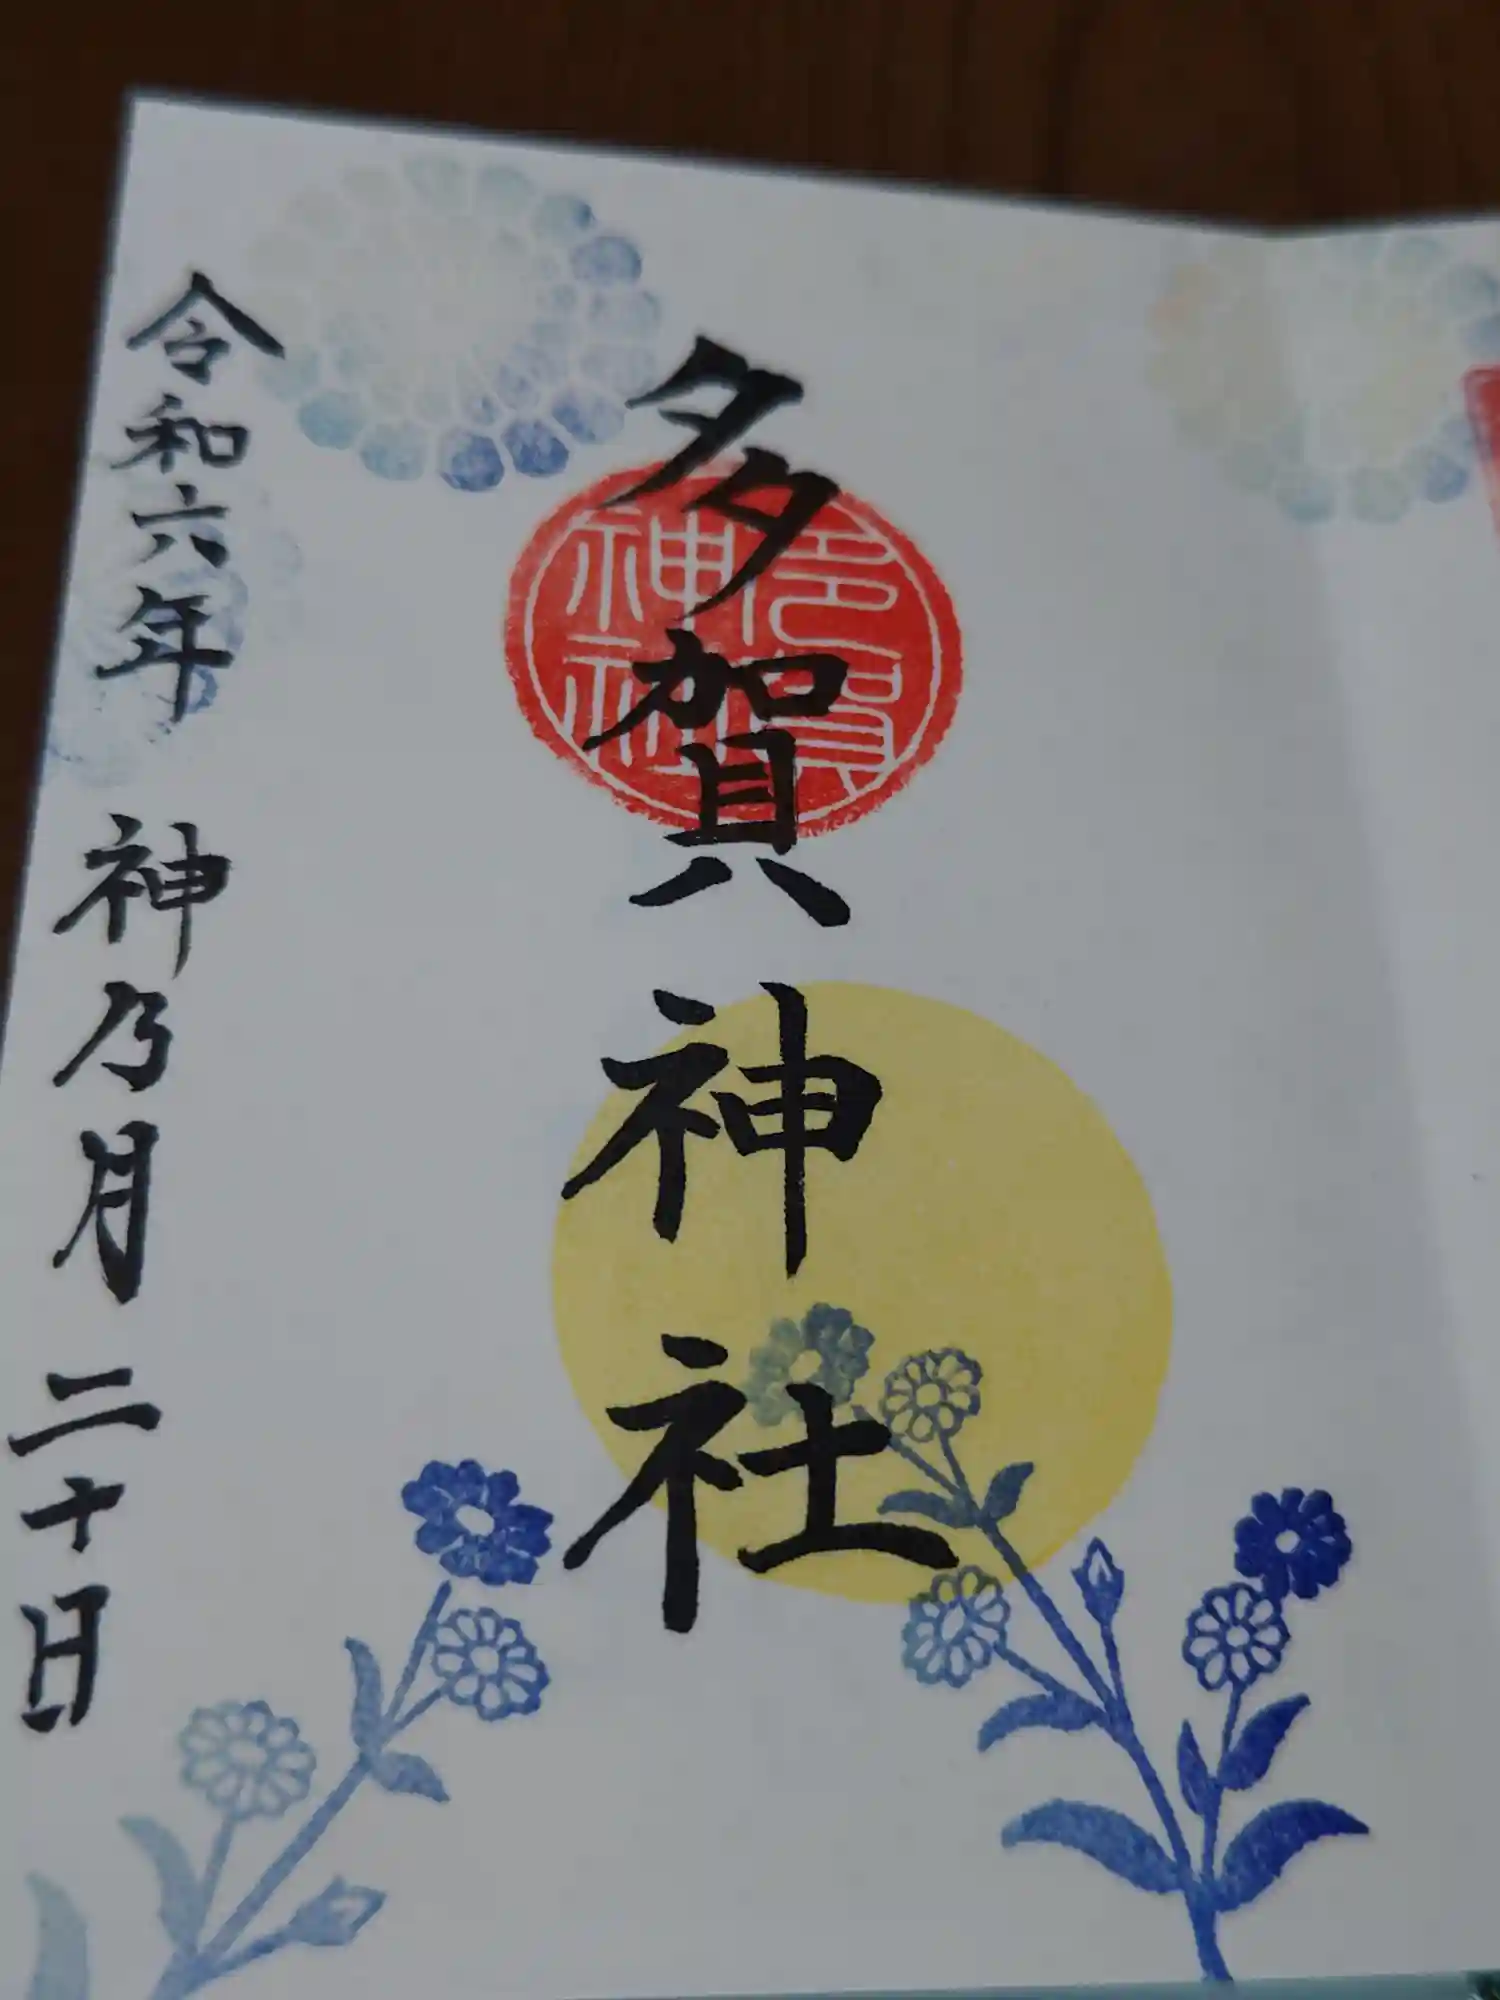 多賀神社
多賀神社
令和六年 神乃月 二十日